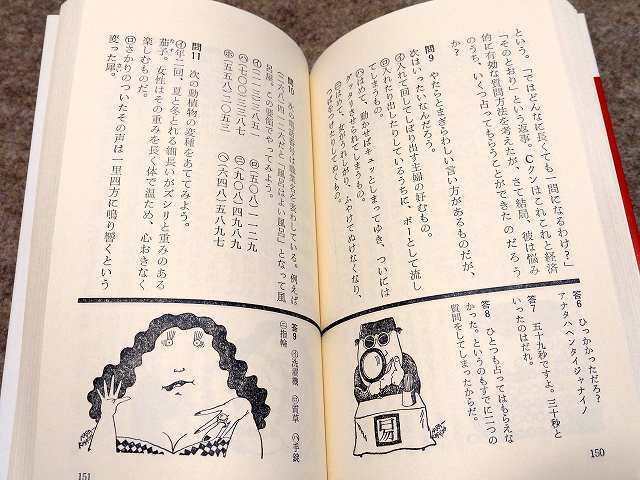 という。「ではどんなに長くても一問になるわけ？」
「そのとおり」という返事。Cクンはこれこれと経済
的に有効な質問方法を考えたが、さて結局、彼は悩み
のうち、いくつ占ってもらうことができたのだろう
か？
問9　やたらとまぎらわしい言い方があるものだが、
次はいったいなんだろう。
㋑入れて回してしぼり出す主婦の好むもの。
㋺入れたり出したりしているうちに、ボーとして流し
てしまうもの。
㋩はめて、動かせばギュッとしまってゆき、ついには
グッタリさせられてしまうもの。
㊁はめて、女がうれしがり、ふやけてぬけなくなり、
答6　ひっかかっただろ？
アナタハヘンタイジャナイノ
答7　五十九秒ですよ。三十秒と
いったのはだれ。
答8　ひとつも占ってはもらえな
かった。というのもすでに二つの
質問をしてしまったからだ。
易
150
問10　次の電話番号は職業名を表わしている。例えば、
となって風
呂屋。この要領でやってみよう。
㋑（二一二）三八五一　㋺（五〇八）一一二九
㋩（七〇〇）三三八七　㊁（三九〇八）四九八九
㋭（五五八）二〇五三　㋬（六四八）五八九七
問11　次の動植物の変種をあててみよう。
㋑年二回、夏と冬とれる細長いがズシリと重みのある
茄子。女性はその重みを長く体で温ため、心おきなく
楽しむものだ。
㋺さかりのついたその声は一里四方に鳴り響くという
変った犀。
答9　㋑洗濯機　㋺質草　㋩手錠
㊁指輪
151